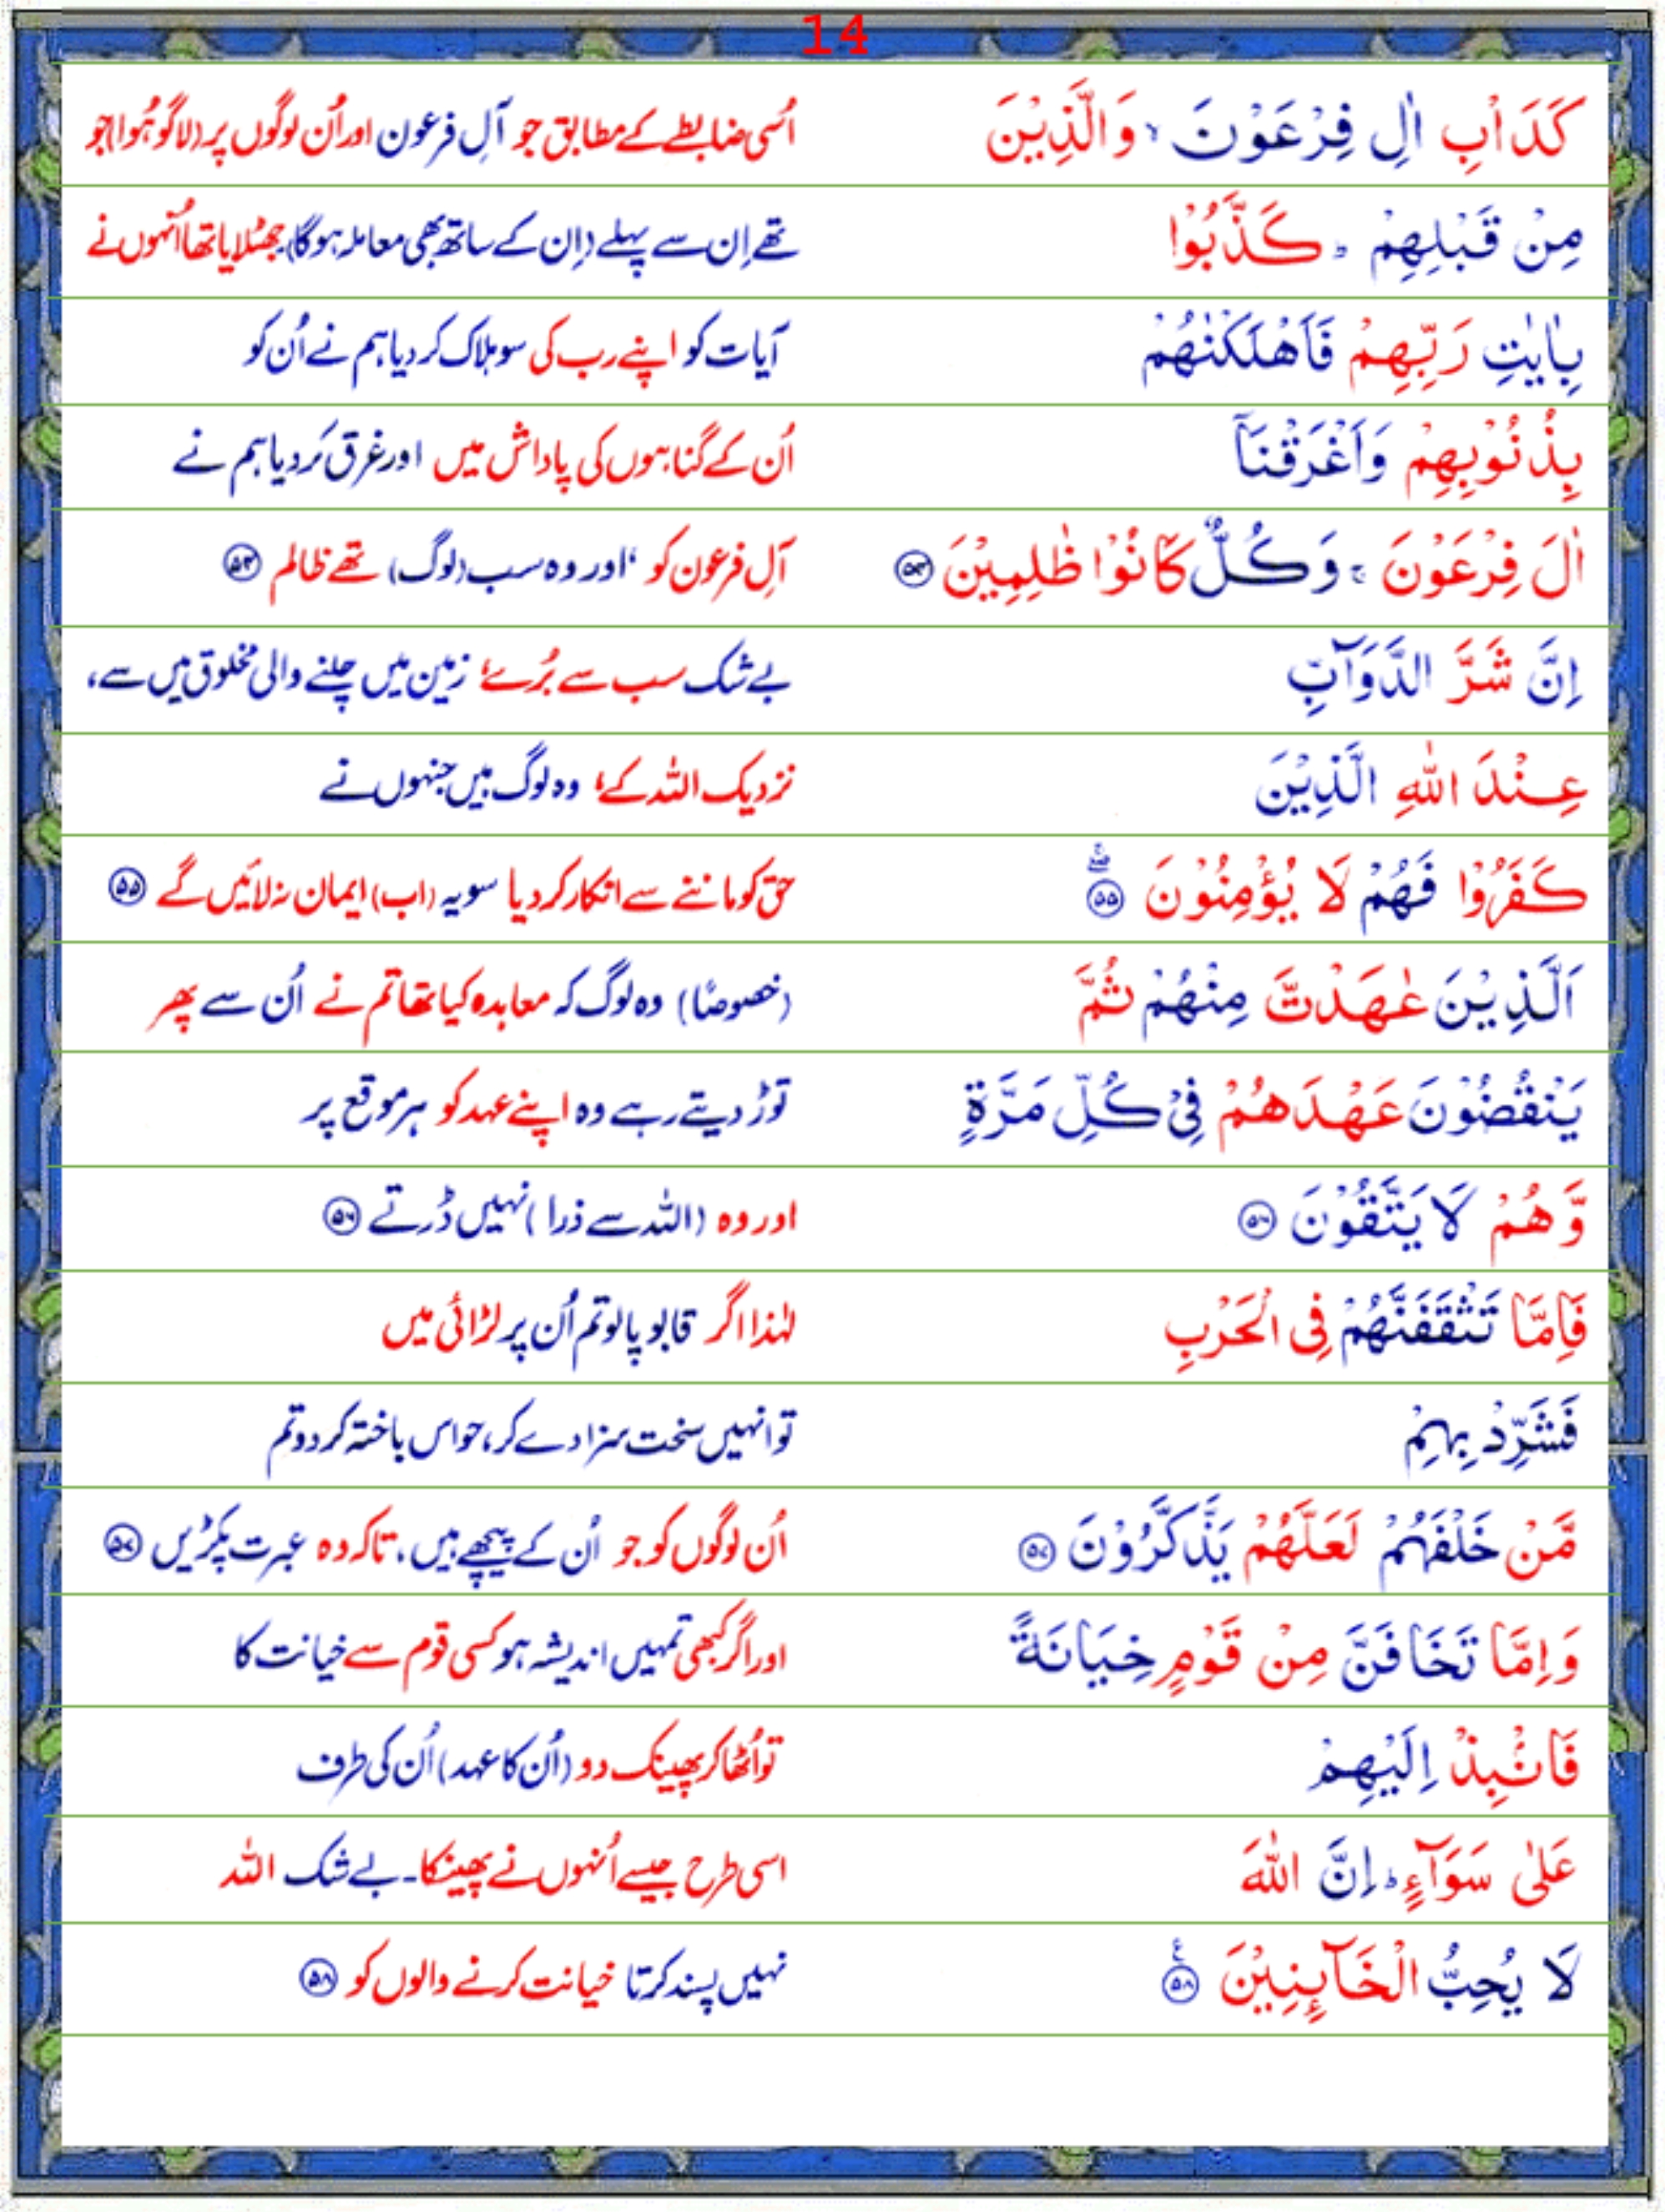 14
كَدَاْبِ اٰلِ فِرْعَوْنَ ۙ وَالَّذِيْنَ اُسی ضابطے کے مطابق جو آلِ فرعون اور اُن لوگوں پر (لاگو ہُوا) جو
مِنْ قَبْلِهِمْ ؕ كَذَّبُوْا تھے اِن سے پہلے (اِن کے ساتھ بھی معاملہ ہوگا) جھٹلایا تھا اُنہوں نے
بِاٰيٰتِ رَبِّهِمْ فَاَهْلَكْنٰهُمْ آیات کو اپنے رب کی سو ہلاک کر دیا ہم نے اُن کو
بِذُنُوْبِهِمْ وَاَغْرَقْنَاۤ اُن کے گناہوں کی پاداش میں اور غرق کر دیا ہم نے
اٰلَ فِرْعَوْنَ ۚ وَكُلٌّ كَانُوْا ظٰلِمِيْنَ ۵۴ آلِ فرعون کو ‘ اور وہ سب (لوگ) تھے ظالم ۵۴
اِنَّ شَرَّ الدَّوَآبِّ بے شک سب سے بُرے، زمین میں چلنے والی مخلوق میں سے،
عِنْدَ اللّٰهِ الَّذِيْنَ نزدیک اللہ کے، وہ لوگ ہیں جنہوں نے
كَفَرُوْا فَهُمْ لَا يُؤْمِنُوْنَ ۵۵ حق کو ماننے سے انکار کر دیا سو یہ (اب) ایمان نہ لائیں گے ۵۵
اَلَّذِيْنَ عٰهَدْتَّ مِنْهُمْ ثُمَّ (خصوصًا) وہ لوگ کہ معاہدہ کیا تھا تم نے اُن سے پھر
يَنْقُضُوْنَ عَهْدَهُمْ فِيْ كُلِّ مَرَّةٍ توڑ دیتے رہے وہ اپنے عہد کو ہر موقع پر
وَّهُمْ لَا يَتَّقُوْنَ ۵۶ اور وہ (اللہ سے ذرا) نہیں ڈرتے ۵۶
فَاِمَّا تَثْقَفَنَّهُمْ فِى الْحَرْبِ لہٰذا اگر قابو پالو تم اُن پر لڑائی میں
فَشَرِّدْ بِهِمْ تو انہیں سخت سزا دے کر، حواس باختہ کر دو تم
مَّنْ خَلْفَهُمْ لَعَلَّهُمْ يَذَّكَّرُوْنَ ۵۷ اُن لوگوں کو جو اُن کے پیچھے ہیں، تاکہ وہ عبرت پکڑیں ۵۷
وَاِمَّا تَخَافَنَّ مِنْ قَوْمٍ خِيَانَةً اور اگر کبھی تمہیں اندیشہ ہو کسی قوم سے خیانت کا
فَانْۢبِذْ اِلَيْهِمْ تو اُٹھا کر پھینک دو (اُن کا عہد) اُن کی طرف
عَلٰى سَوَآءٍ ؕ اِنَّ اللّٰهَ اسی طرح جیسے اُنہوں نے پھینکا۔ بے شک اللہ
لَا يُحِبُّ الْخَآئِنِيْنَ ۵۸ نہیں پسند کرتا خیانت کرنے والوں کو ۵۸